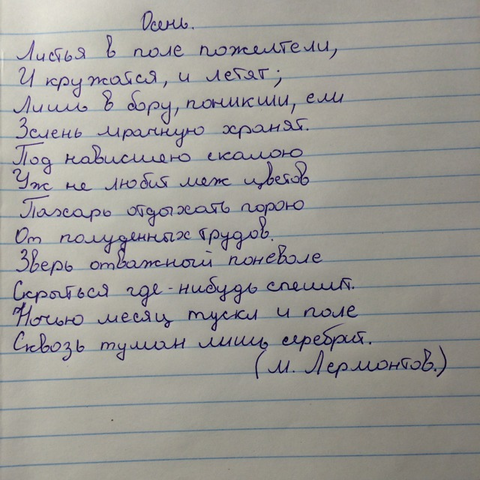 Осень.
Листья в поле пожелтели,
И кружатся, и летят;
Лишь в бору, поникши, ели
Зелень мрачную хранят.
Под нависшею скалою
Уж не любит меж цветов
Пахарь отдыхать порою
От полуденных трудов.
Зверь отважный поневоле
Скрыться где-нибудь спешит.
Ночью месяц тускл и поле
Сквозь туман лишь серебрит.
(М. Лермонтов.)